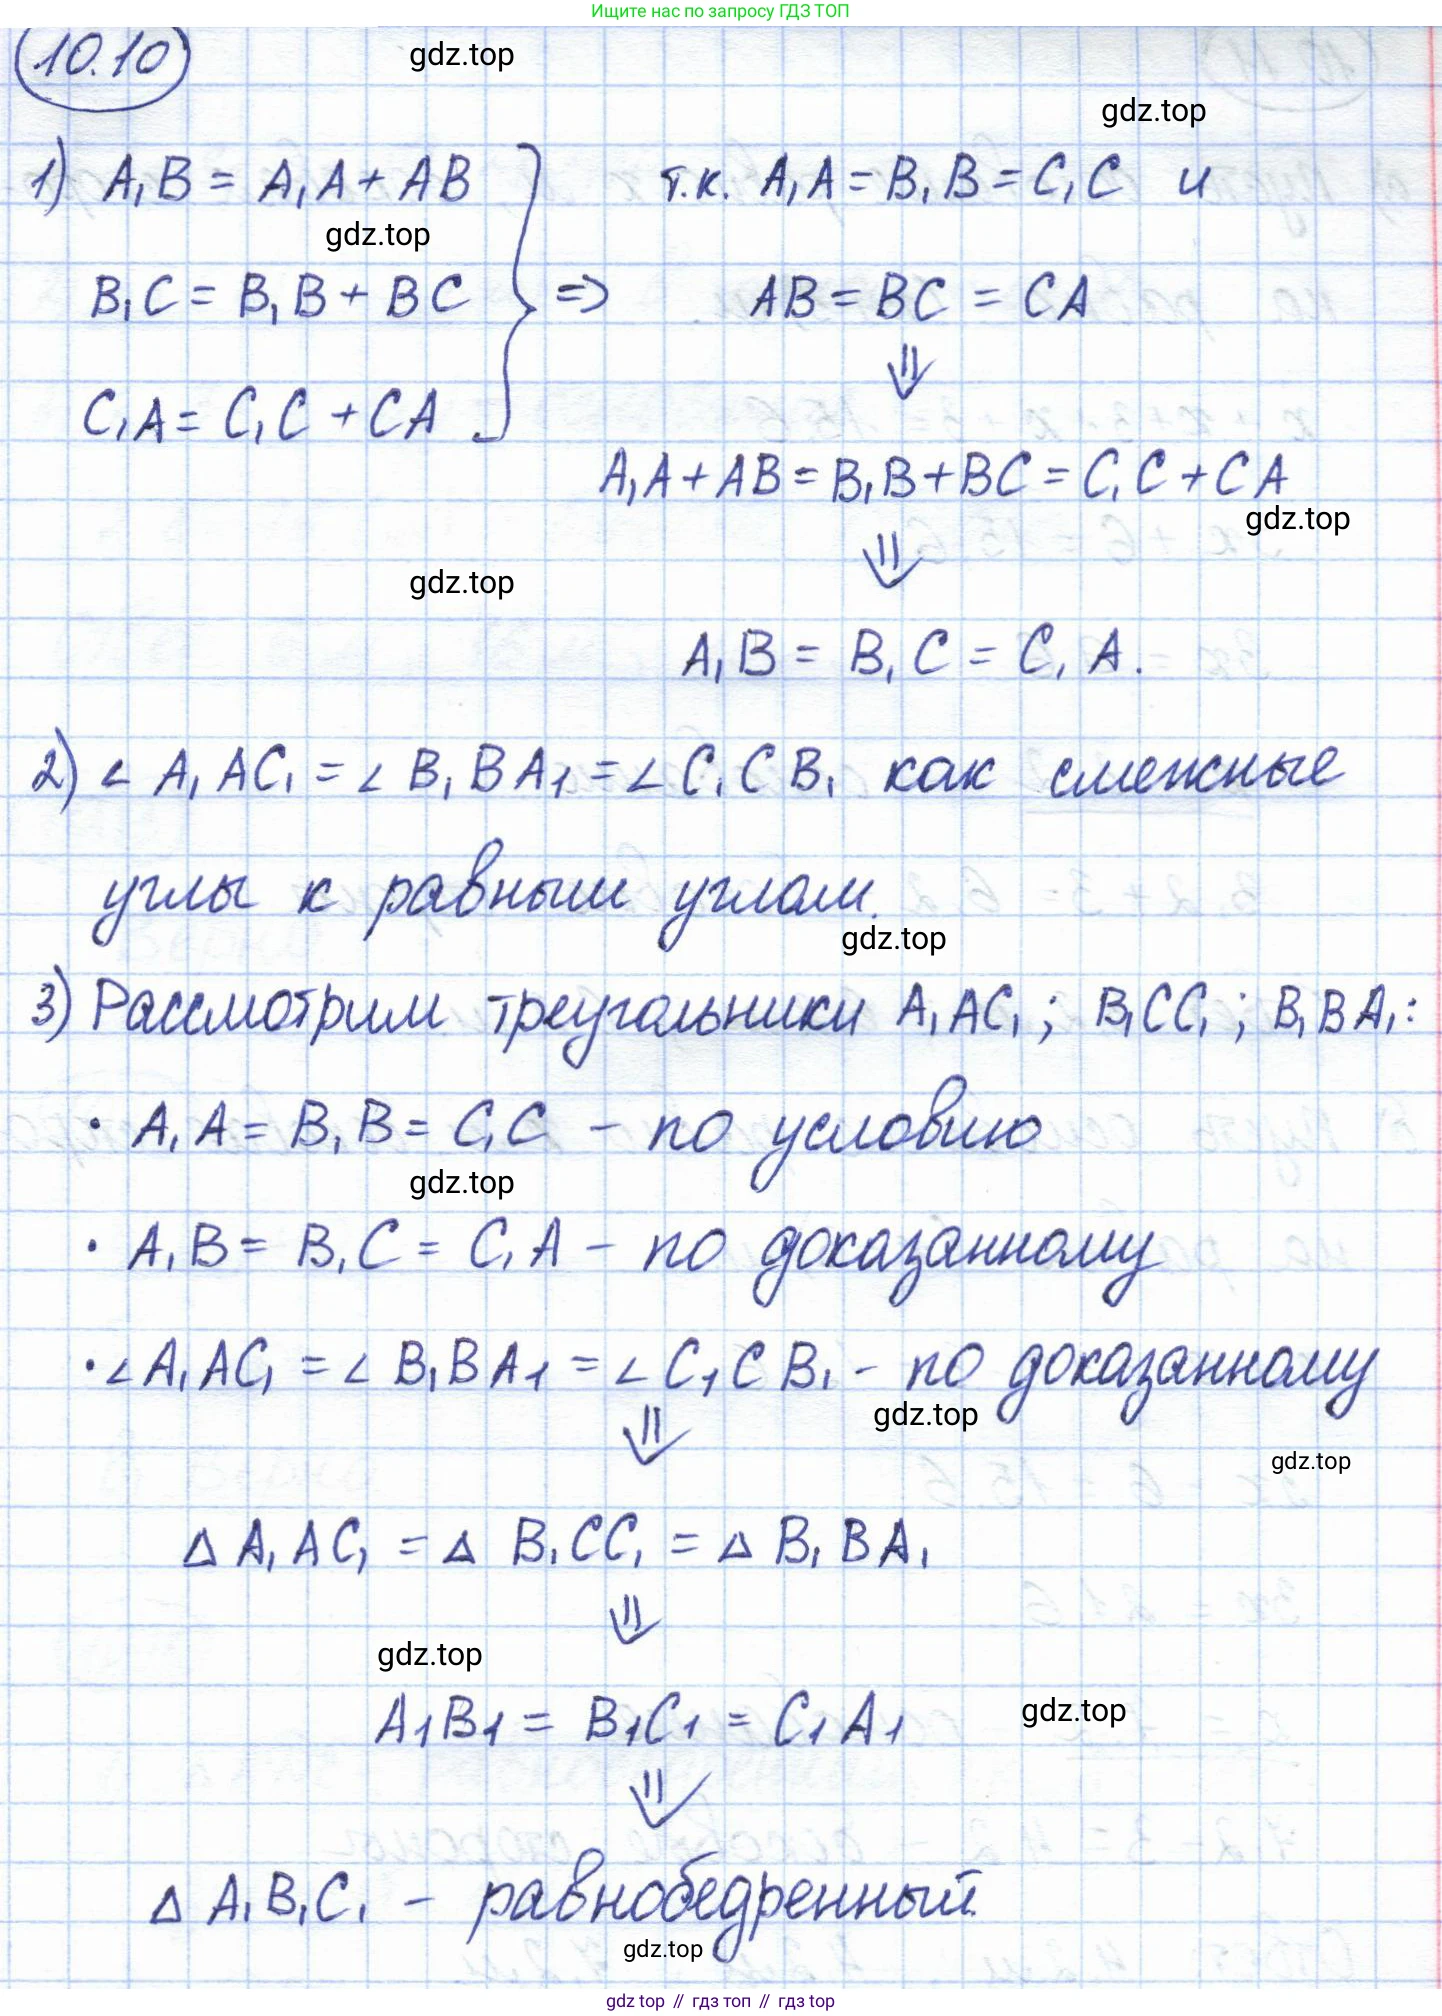 Ищите нас по запросу ГДЗ ТОП
10.10
gdz.top
gdz.top
1) A₁B = A₁A + AB
т.к. A₁A = B₁B = C₁C и
gdz.top
B₁C = B₁B + BC
⇒
AB = BC = CA
⇓
C₁A = C₁C + CA
A₁A + AB = B₁B + BC = C₁C + CA
gdz.top
⇓
gdz.top
A₁B = B₁C = C₁A.
2) ∠ A₁AC₁ = ∠ B₁BA₁ = ∠ C₁CB₁ как смежные
углы к равным углам.
gdz.top
3) Рассмотрим треугольники A₁AC₁ ; B₁CC₁ ; B₁BA₁ :
• A₁A = B₁B = C₁C – по условию
gdz.top
• A₁B = B₁C = C₁A – по доказанному
• ∠ A₁AC₁ = ∠ B₁BA₁ = ∠ C₁CB₁ – по доказанному
gdz.top
⇓
gdz.top
Δ A₁AC₁ = Δ B₁CC₁ = Δ B₁BA₁
⇓
gdz.top
A₁B₁ = B₁C₁ = C₁A₁
gdz.top
⇓
Δ A₁B₁C₁ – равнобедренный.
gdz.top
gdz top // гдз топ // gdz top